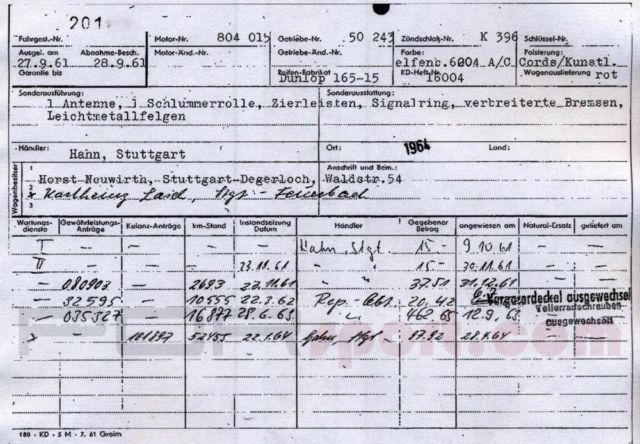 201
Fahrgest.-Nr. Motor-Nr. 804 015 Getriebe-Nr. 50 243 Zündschloß-Nr. K 396 Schlüssel-Nr.
Ausgel. am Abnahme-Besch. Motor-Änd.-Nr. Getriebe-Änd.-Nr. Farbe: Polsterung:
27.9.61 28.9.61 elfenb.6004 A/C Cords/Kunstl.
Garantie bis Reifen-Fabrikat KD-Heft-Nr. Wagenauslieferung rot
Dunlop 165-15 16004
Sonderausführung: Sonderausstattung:
1 Antenne, 1 Schlummerrolle, Zierleisten, Signalring, verbreiterte Bremsen,
Leichtmetallfelgen
Händler: Ort: 1964 Land:
Hahn, Stuttgart
Wagenbesitzer 1 Anschrift und Bem.:
Horst Neuwirth, Stuttgart-Degerloch, Waldstr.54
2 Karlheinz Stgt - Feuerbach
3
Wartungsdienste Gewährleistungs-Anträge Kulanz-Anträge km-Stand Instandsetzung Datum Händler Gegebener Betrag angewiesen am Natural-Ersatz geliefert am
I - - - Hahn, Stgt 15.- 9.10.61
II - - - 23.11.61 " " 15.- 30.11.61
- 080903 - 2693 23.11.61 " " 37.51 31.12.61
- 32595 - 10555 22.3.62 Rep.-Abt. 20,42 Vergaserdeckel ausgewechselt
Tellerradschrauben
- 035327 - 16877 28.6.63 " 462,65 12.9.63 ausgewechselt
x - 101897 52455 22.1.64 Hahn, Stgt 87.92 28.4.64
180 - KD - 5 M - 7. 61 Greim